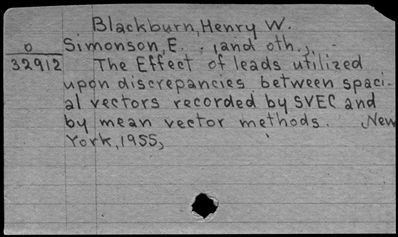 Blackburn, Henry W.
o Simonson, E. . , and oth.,
32912 The Effect of leads utilized
upon discrepancies between spaci-
al vectors recorded by SVEC and
by mean vector methods. New
York, 1955,